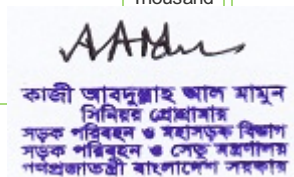 Thousand
কাজী আবদুল্লাহ আল মামুন
সিনিয়র প্রোগ্রামার
সড়ক পরিবহন ও মহাসড়ক বিভাগ
সড়ক পরিবহন ও সেতু মন্ত্রণালয়
গণপ্রজাতন্ত্রী বাংলাদেশ সরকার